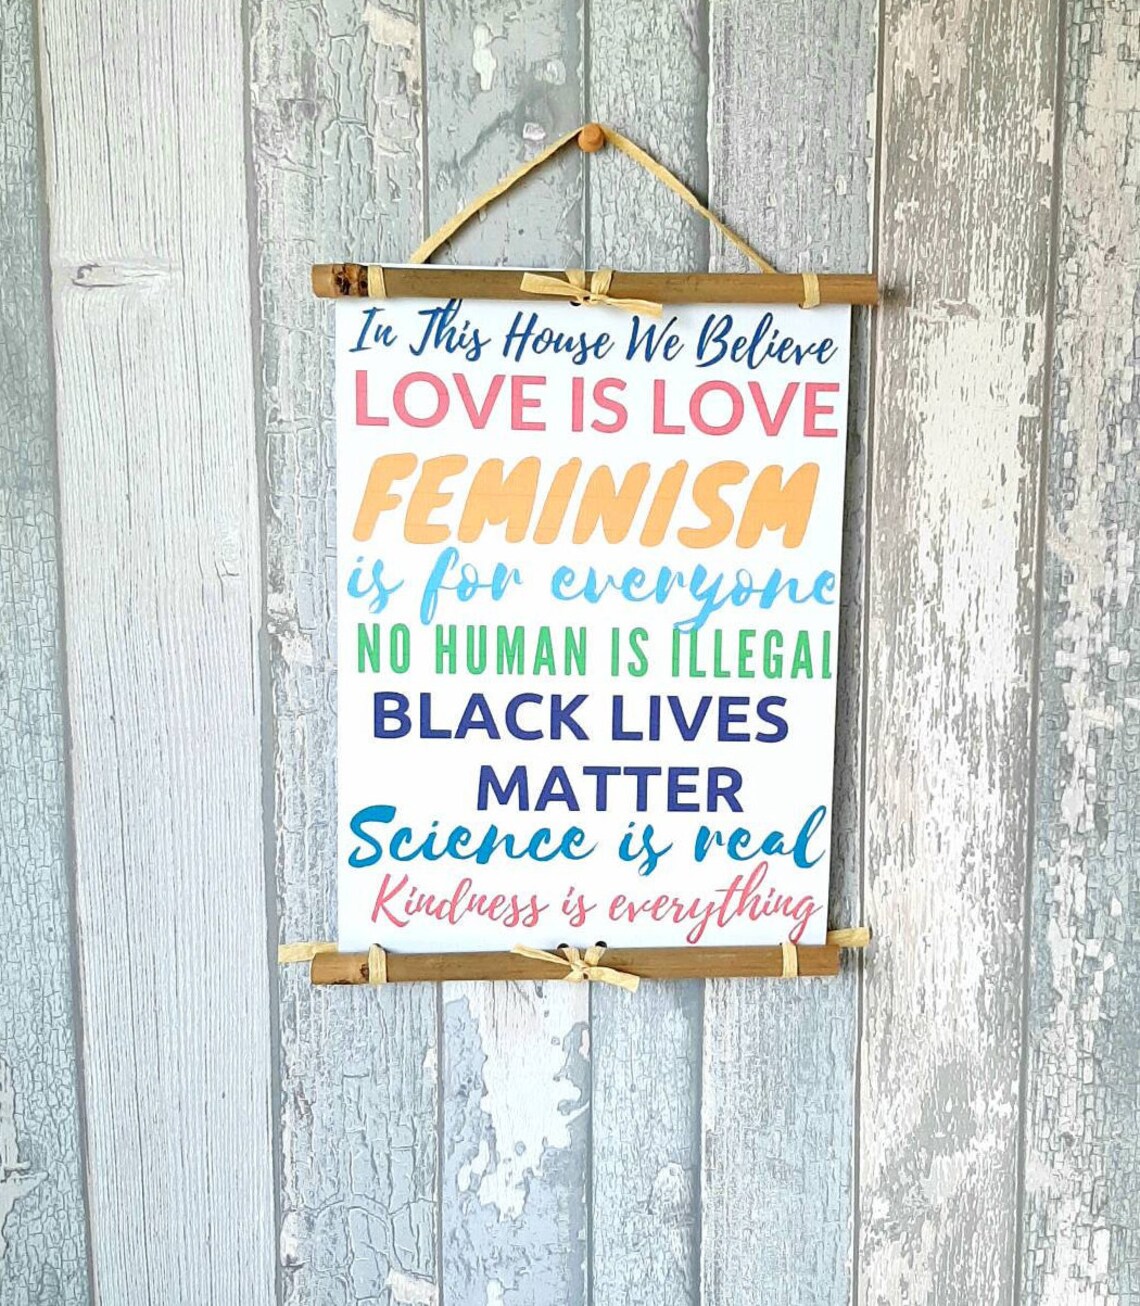 In This House We Believe
LOVE IS LOVE
FEMINISM
is for everyone
NO HUMAN IS ILLEGAL
BLACK LIVES
MATTER
Science is real
Kindness is everything